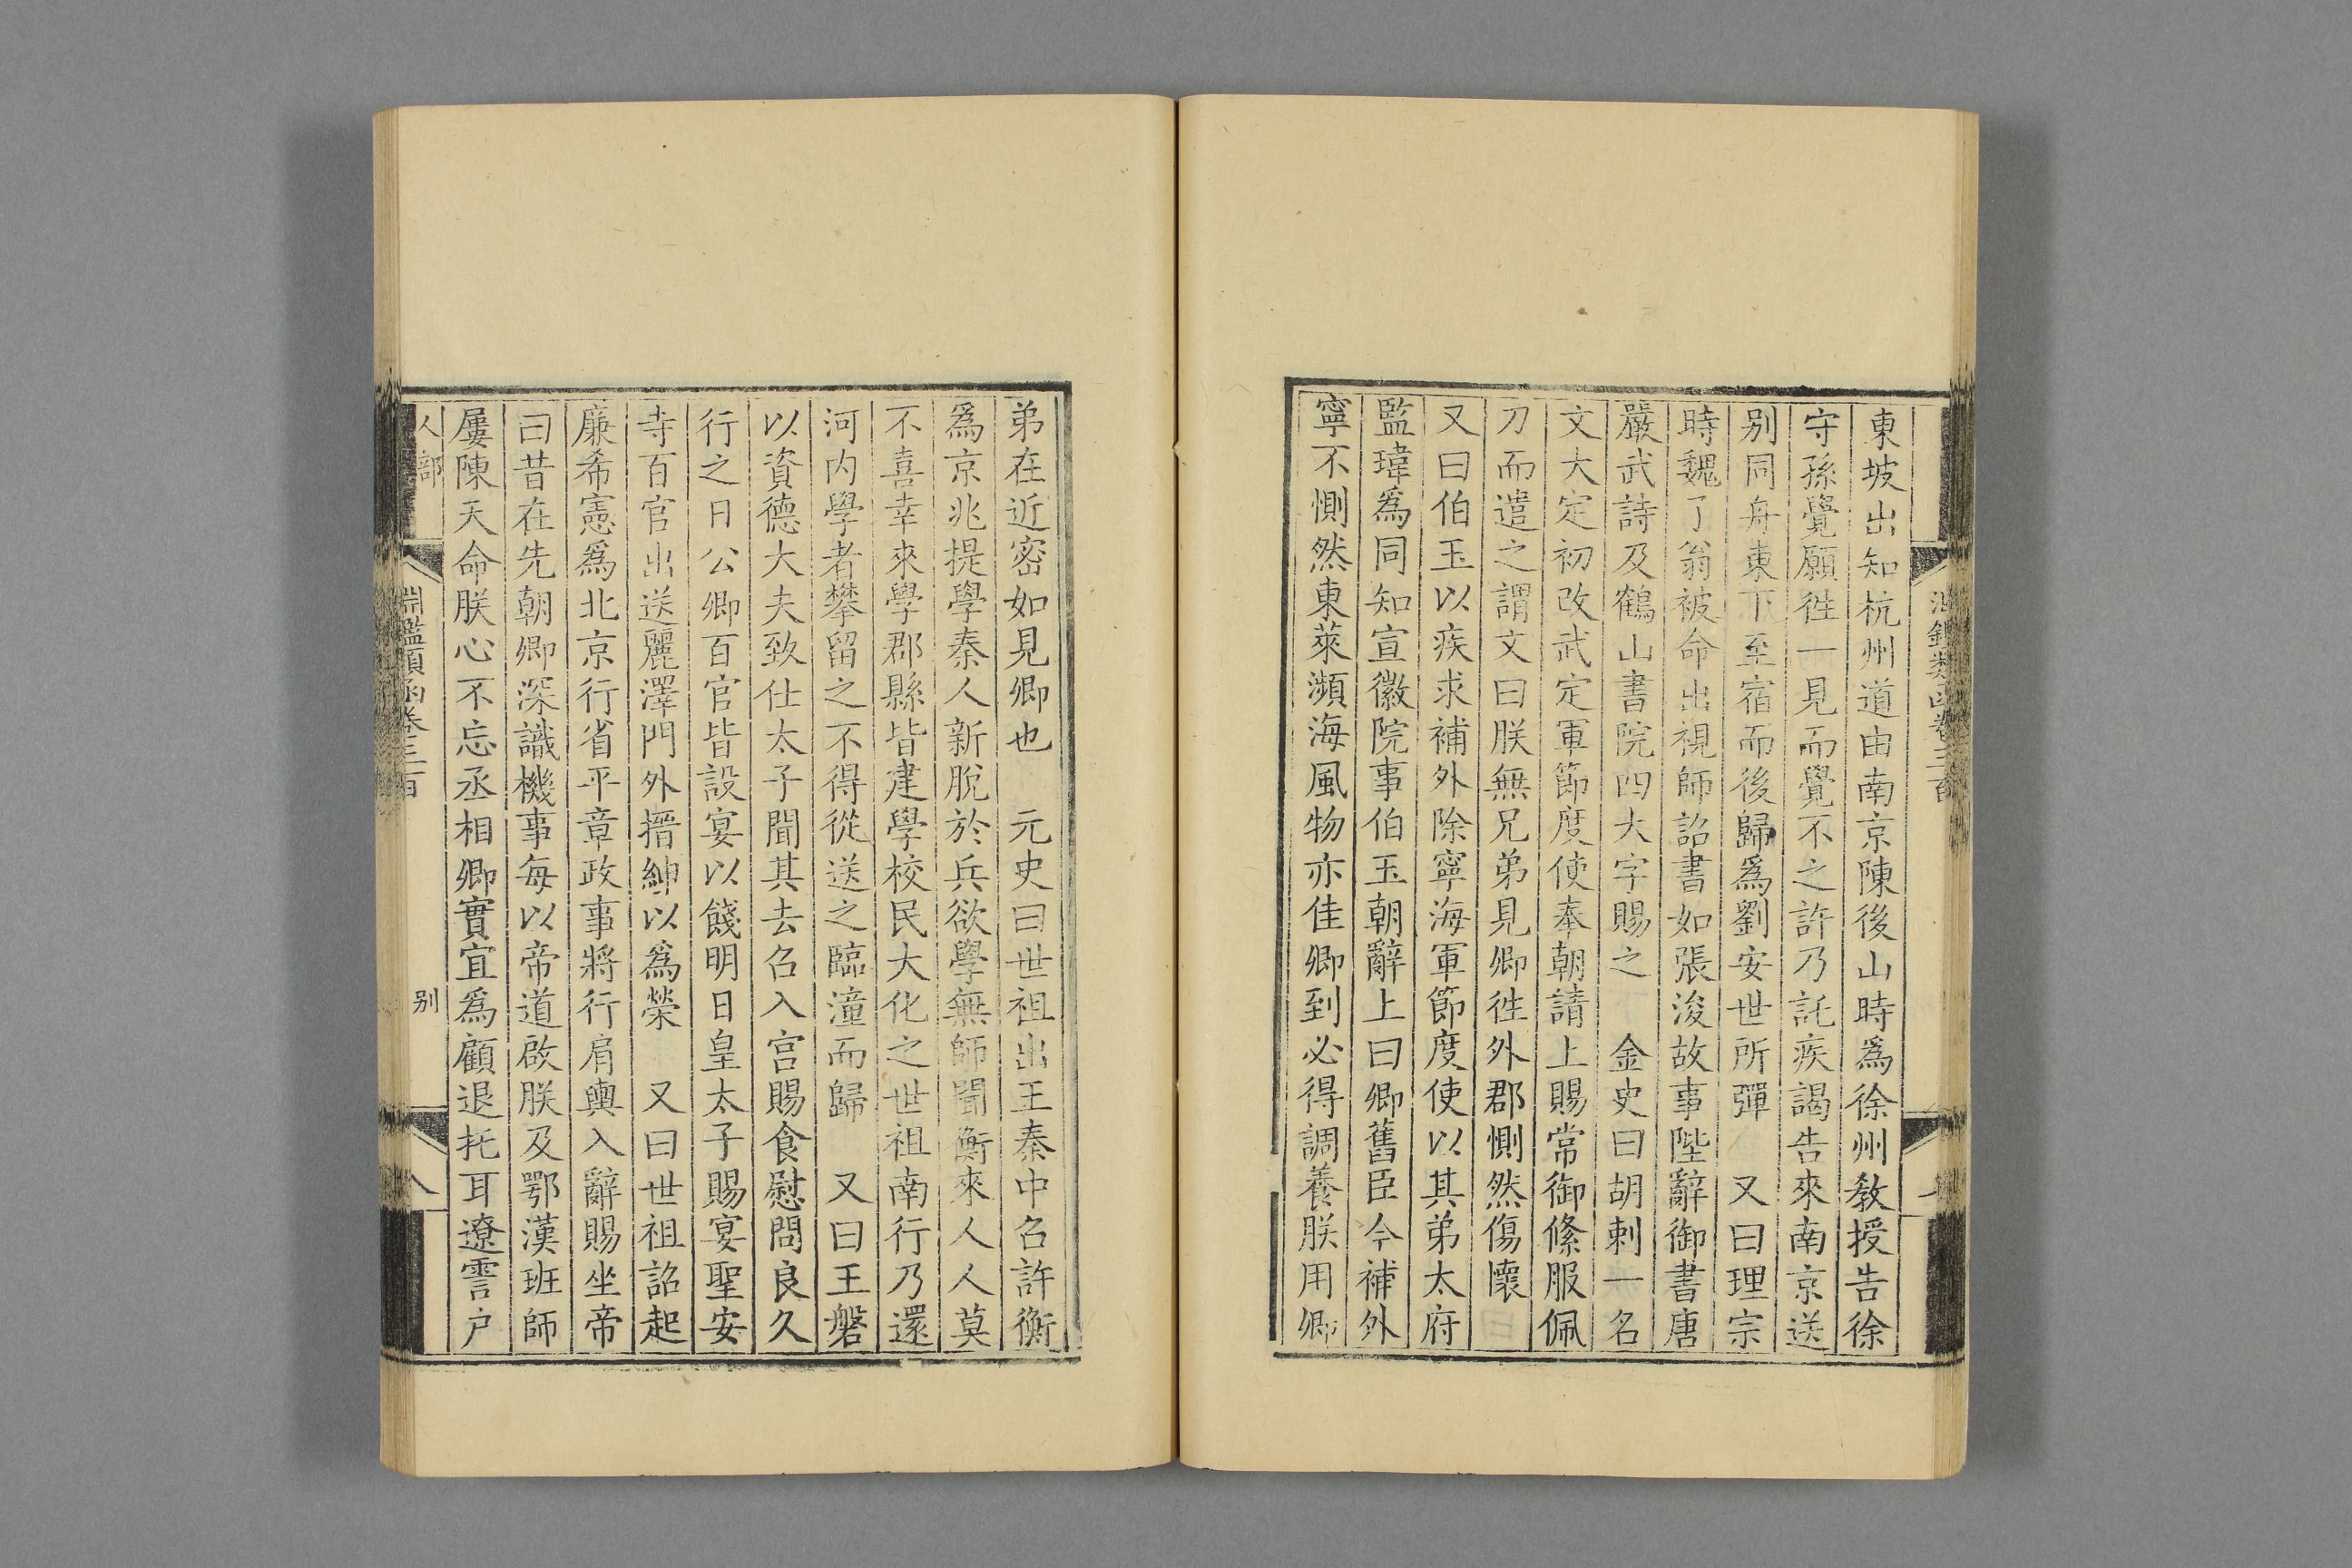 東坡出知杭州道由南京陳後山時爲徐州教授告徐
守孫覺願徃一見而覺不之許乃託疾謁告來南京送
别同舟東下至宿而後歸爲劉安世所彈　又曰理宗
時魏了翁被命出視師詔書如張浚故事陛辭御書唐
嚴武詩及鶴山書院四大字賜之　金史曰胡剌一名
文大定初改武定軍節度使奉朝請上賜常御絛服佩
刀而遣之謂文曰朕無兄弟見卿徃外郡惻然傷懷
又曰伯玉以疾求補外除寧海軍節度使以其弟太府
監瑋爲同知宣徽院事伯玉朝辭上曰卿舊臣今補外
寧不惻然東萊瀕海風物亦佳卿到必得調養朕用卿
弟在近密如見卿也　元史曰世祖出王秦中召許衡
爲京兆提學秦人新脫於兵欲學無師聞衡來人人莫
不喜幸來學郡縣皆建學校民大化之世祖南行乃還
河内學者攀留之不得從送之臨潼而歸　又曰王磐
以資德大夫致仕太子聞其去召入宮賜食慰問良久
行之日公卿百官皆設宴以餞明日皇太子賜宴聖安
寺百官出送麗澤門外搢紳以爲榮　又曰世祖詔起
廉希憲爲北京行省平章政事將行肩輿入辭賜坐帝
曰昔在先朝卿深識機事每以帝道啟朕及鄂漢班師
屢陳天命朕心不忘丞相卿實宜爲顧退托耳遼霫户
人部
淵鑑類函卷三百
别
八